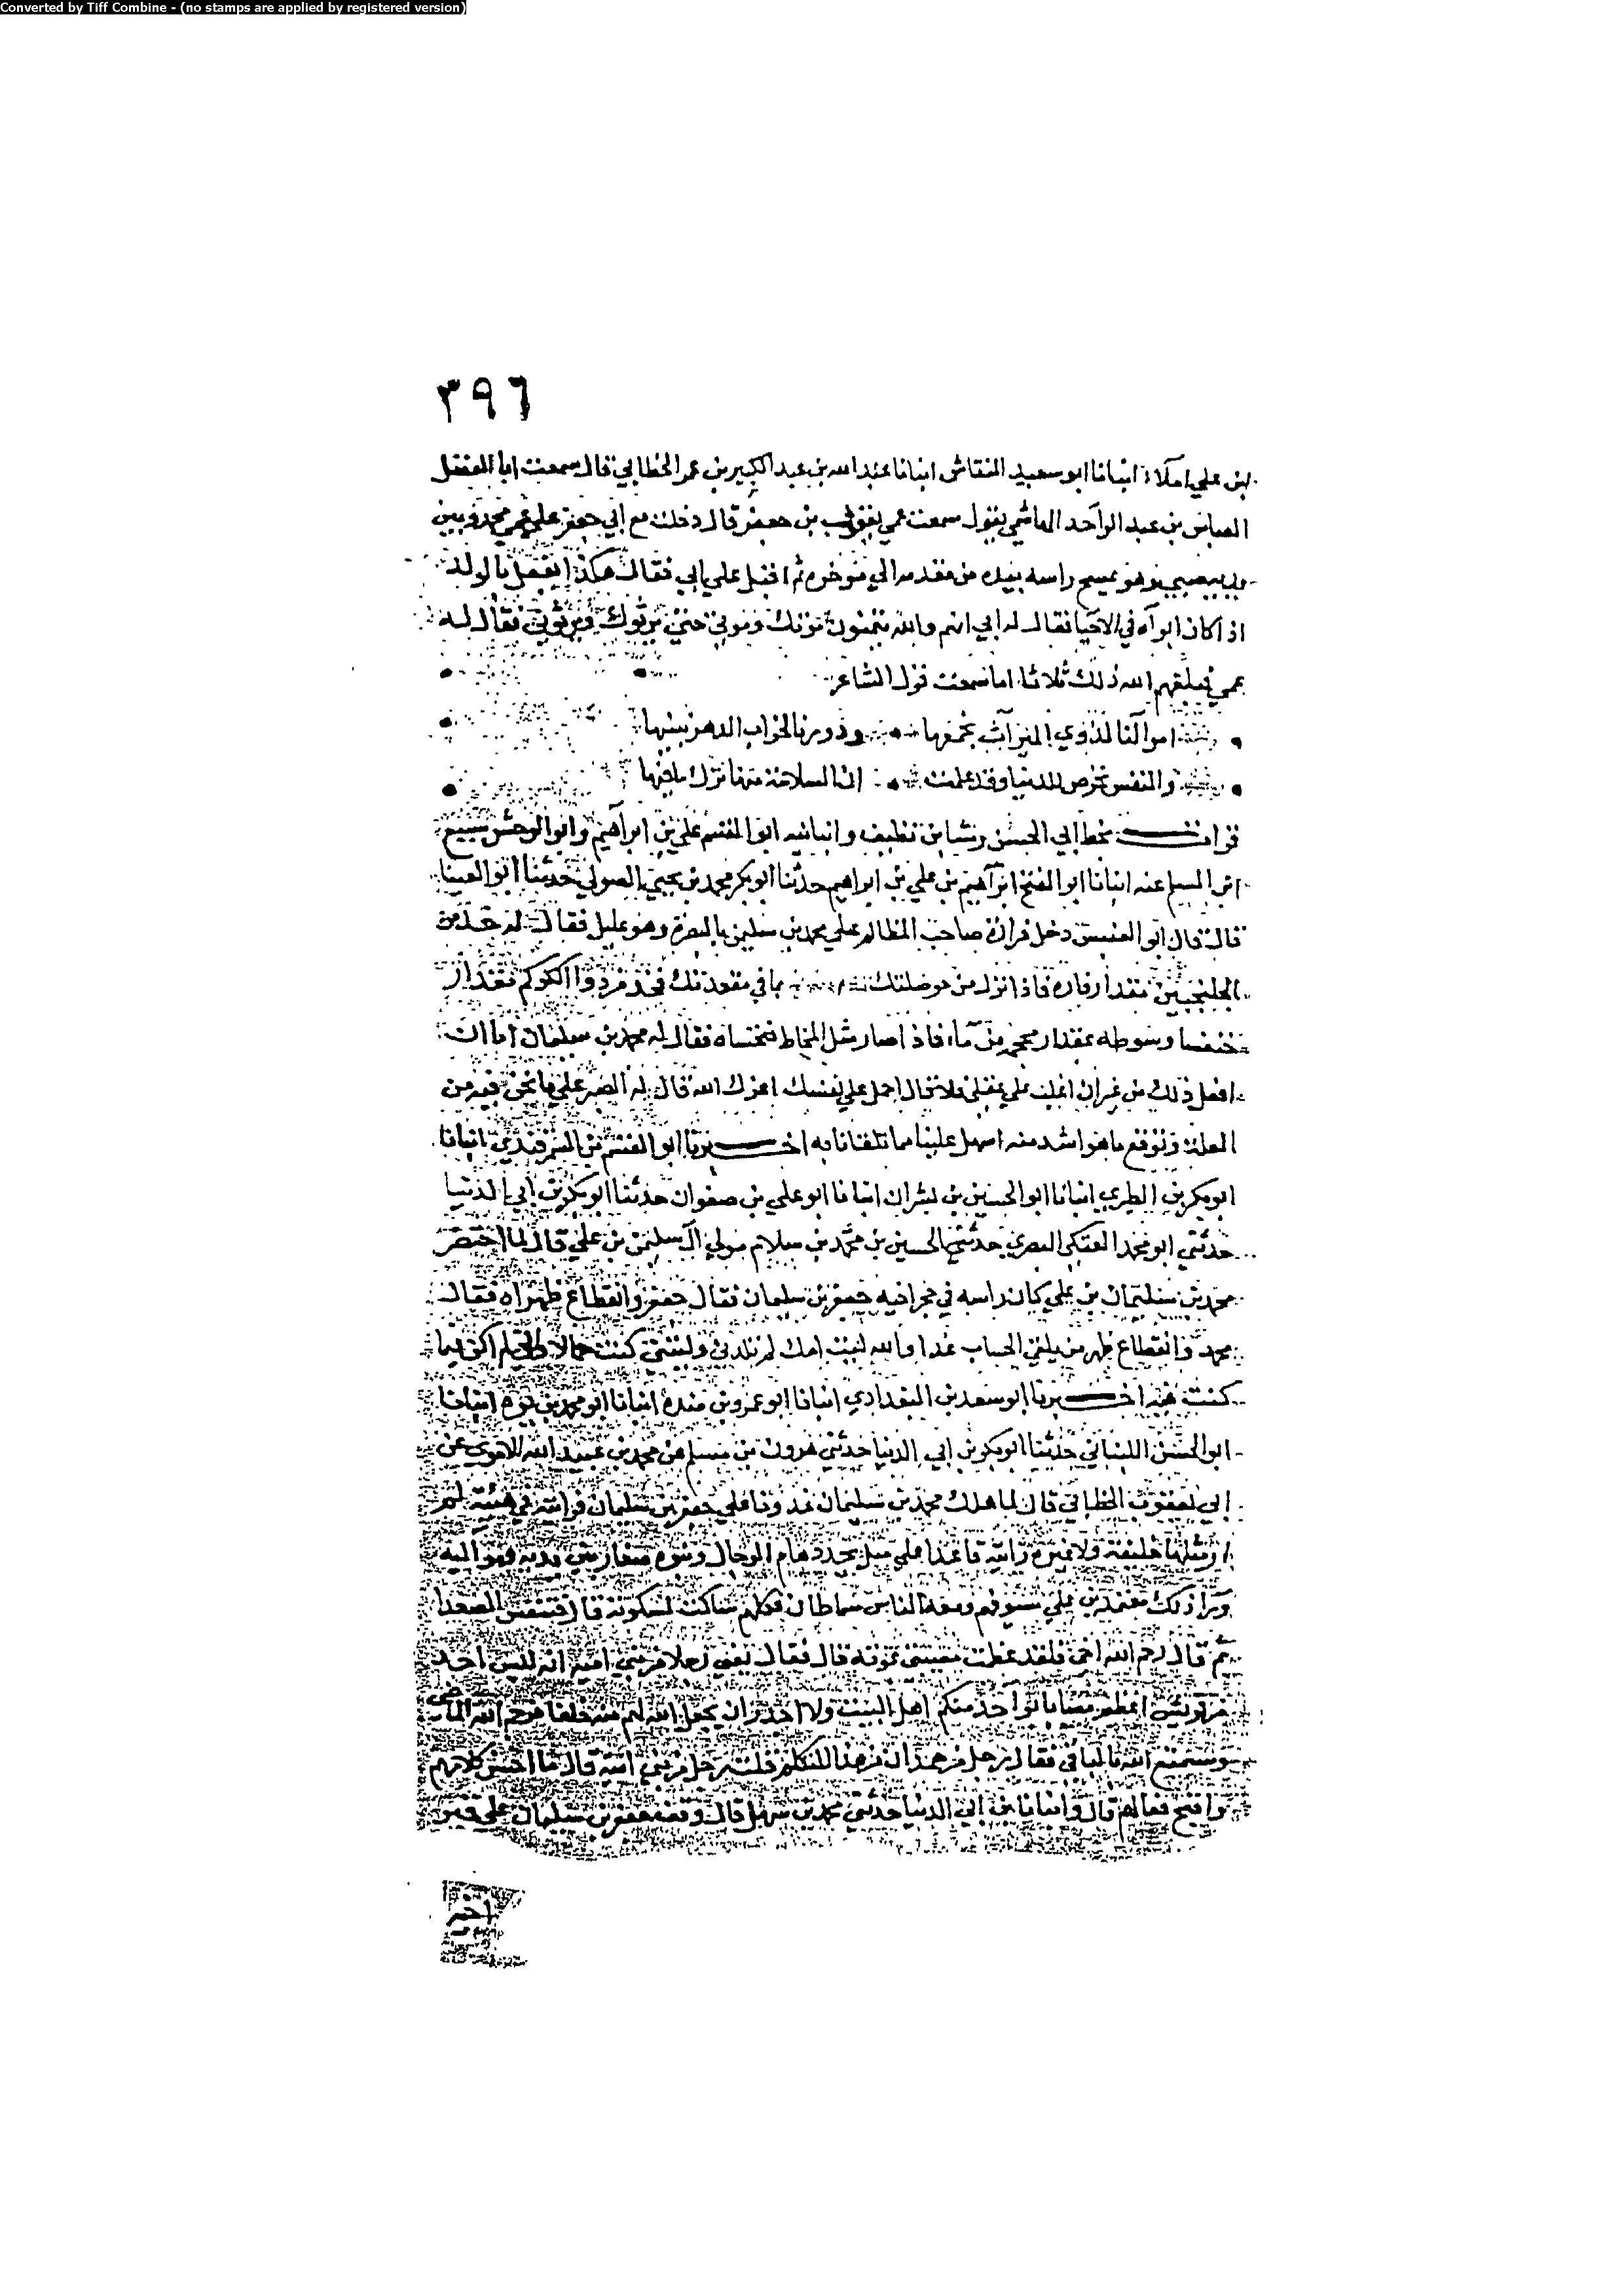 Converted by Tiff Combine - (no stamps are applied by registered version)
٣٩٦
بن علي املاء انبانا ابو سعيد النقاش انبانا عبد الله بن عبد الكبير بن عمر الخطابي قال سمعت ابا الفضل
العباس بن عبد الواحد الهاشمي يقول سمعت عمي يعقوب بن جعفر قال دخلت مع ابي جعفر علي عمي محمد وبين
يديه صبي وهو يمسح راسه بيده من مقدمه الي موخره ثم اقبل علي ابي فقال هكذا يفعل بالولد
اذا كان ابواه في الاحيا فقال له ابي انتم والله تتمنون موتك وموتي حتي يرثوك ويرثوني فقال له
عمي فبلغهم الله ذلك ثلاثا اما سمعت قول الشاعر
اموالنا لذوي الميراث نجمعها ودورنا لخراب الدهر نبنيها
والنفس تحرص للدنيا وقد علمت ان السلامة منها ترك ما فيها
قرات بخط ابي الحسن رشا بن نظيف وانبانيه ابو القسم علي بن ابراهيم وابو الوحش سبيع
بن المسلم عنه انبانا ابو الفتح ابراهيم بن علي بن ابراهيم حدثنا ابو بكر محمد بن يحيي الصولي حدثنا ابو العينا
قال قال ابو العنبس دخل صاحب المظالم علي محمد بن سليمن بالبصرة وهو عليل فقال له خذ من
الجلنجبين مقدار فاره فاذا نزل من حوصلتك فخذ مقدار
خنفسا وسوطه بمقدار محجم من ماء فاذا صار مثل المخاط فتحساه فقال له محمد بن سليمان اما ان
افعل ذلك من غير ان اغلب علي عقلي فلا قال احمل علي نفسك اعزك الله قال له الصبر علي ما نحن فيه من
العلة وتوقع ما هو اشد منه اسهل علينا مما تلقانا به اخبرنا ابو القسم بن السمرقندي انبانا
ابو بكر بن الطبري انبانا ابو الحسين بن بشران انبانا ابو علي بن صفوان حدثنا ابو بكر بن ابي الدنيا
حدثني ابو محمد العتكي البصري حدثني الحسين بن محمد بن سلام مولي ال سليمن بن علي قال لما احتضر
محمد بن سليمان بن علي كان راسه في حجر اخيه جعفر بن سليمان فقال جعفر وانقطاع ظهراه فقال
محمد وانقطاع ظهر من يلقي الحساب غدا والله ليت امك لم تلدني وليتني كنت حمالا واني لم اكن فيما
كنت فيه اخبرنا ابو سعد بن البغدادي انبانا ابو عمرو بن منده انبانا ابو محمد بن يوه انبانا
ابو الحسن اللبناني حدثنا ابو بكر بن ابي الدنيا حدثني هرون بن مسلم عن محمد بن عبيد الله الاموي عن
ابي يعقوب الخطابي قال لما هلك محمد بن سليمان غدونا علي جعفر بن سليمان فرايته في هيئة لم
ار مثلها لخليفة ولا غيره رايته قاعدا
ومعه الناس سماطان فكلهم ساكت لسكوته قال فتنفس الصعدا
ثم قال رحم الله اخي فلقد عظمت مصيبتي بموته قال فقال يعني رجلا من بني امية انه ليس احد
من قريش اعظم مصابا بواحد منكم اهل البيت ولا اجدر ان يجعل الله لهم منه خلفا فرحم الله الماضي
ومتع الله بالباقي فقال رجل من همدان من هذا المتكلم قلت رجل من بني امية قال ما احسن كلامهم
واقبح فعالهم قال وانبانا ابن ابي الدنيا حدثني محمد بن سهل قال وقف جعفر بن سليمان علي قبر
اخيه